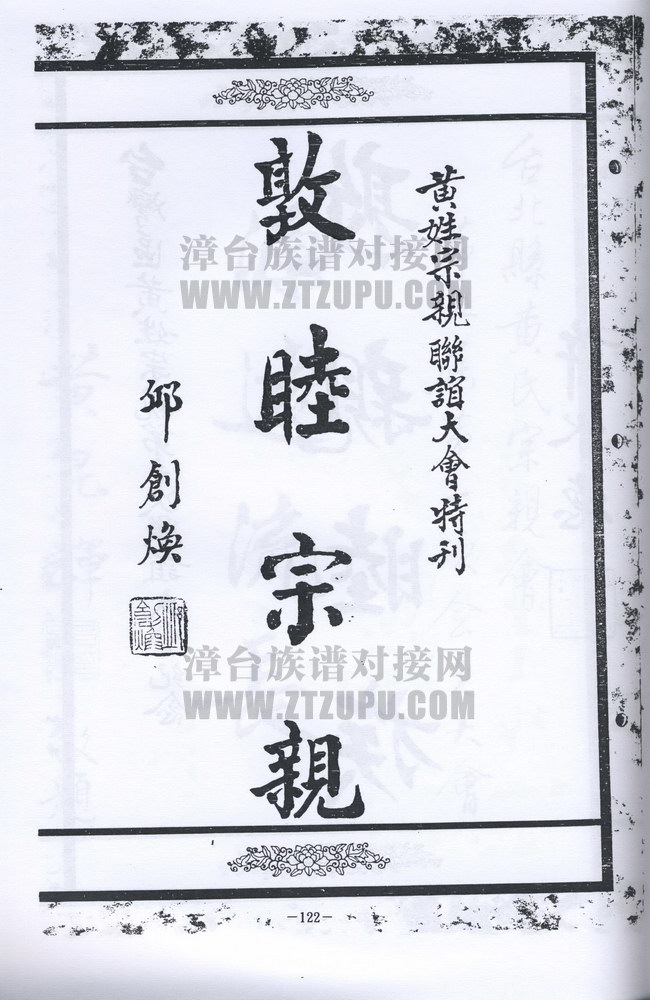 黄姓宗親聯誼大會特刊
敦睦宗親
邱創煥
漳台族谱对接网
WWW.ZTZUPU.COM
漳台族谱对接网
WWW.ZTZUPU.COM
-122-